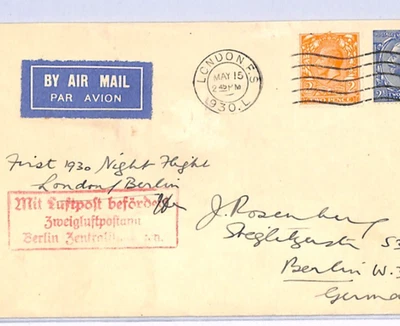 BY AIR MAIL
PAR AVION
LONDON F.S
MAY 15
1930.L
First 1930 Night Flight
London/Berlin
Mit Luftpost beförde
Zweigluftpostamt
Berlin Zentral
J. Rosenberg
Steglitzerstr 53
Berlin W.3
Germa